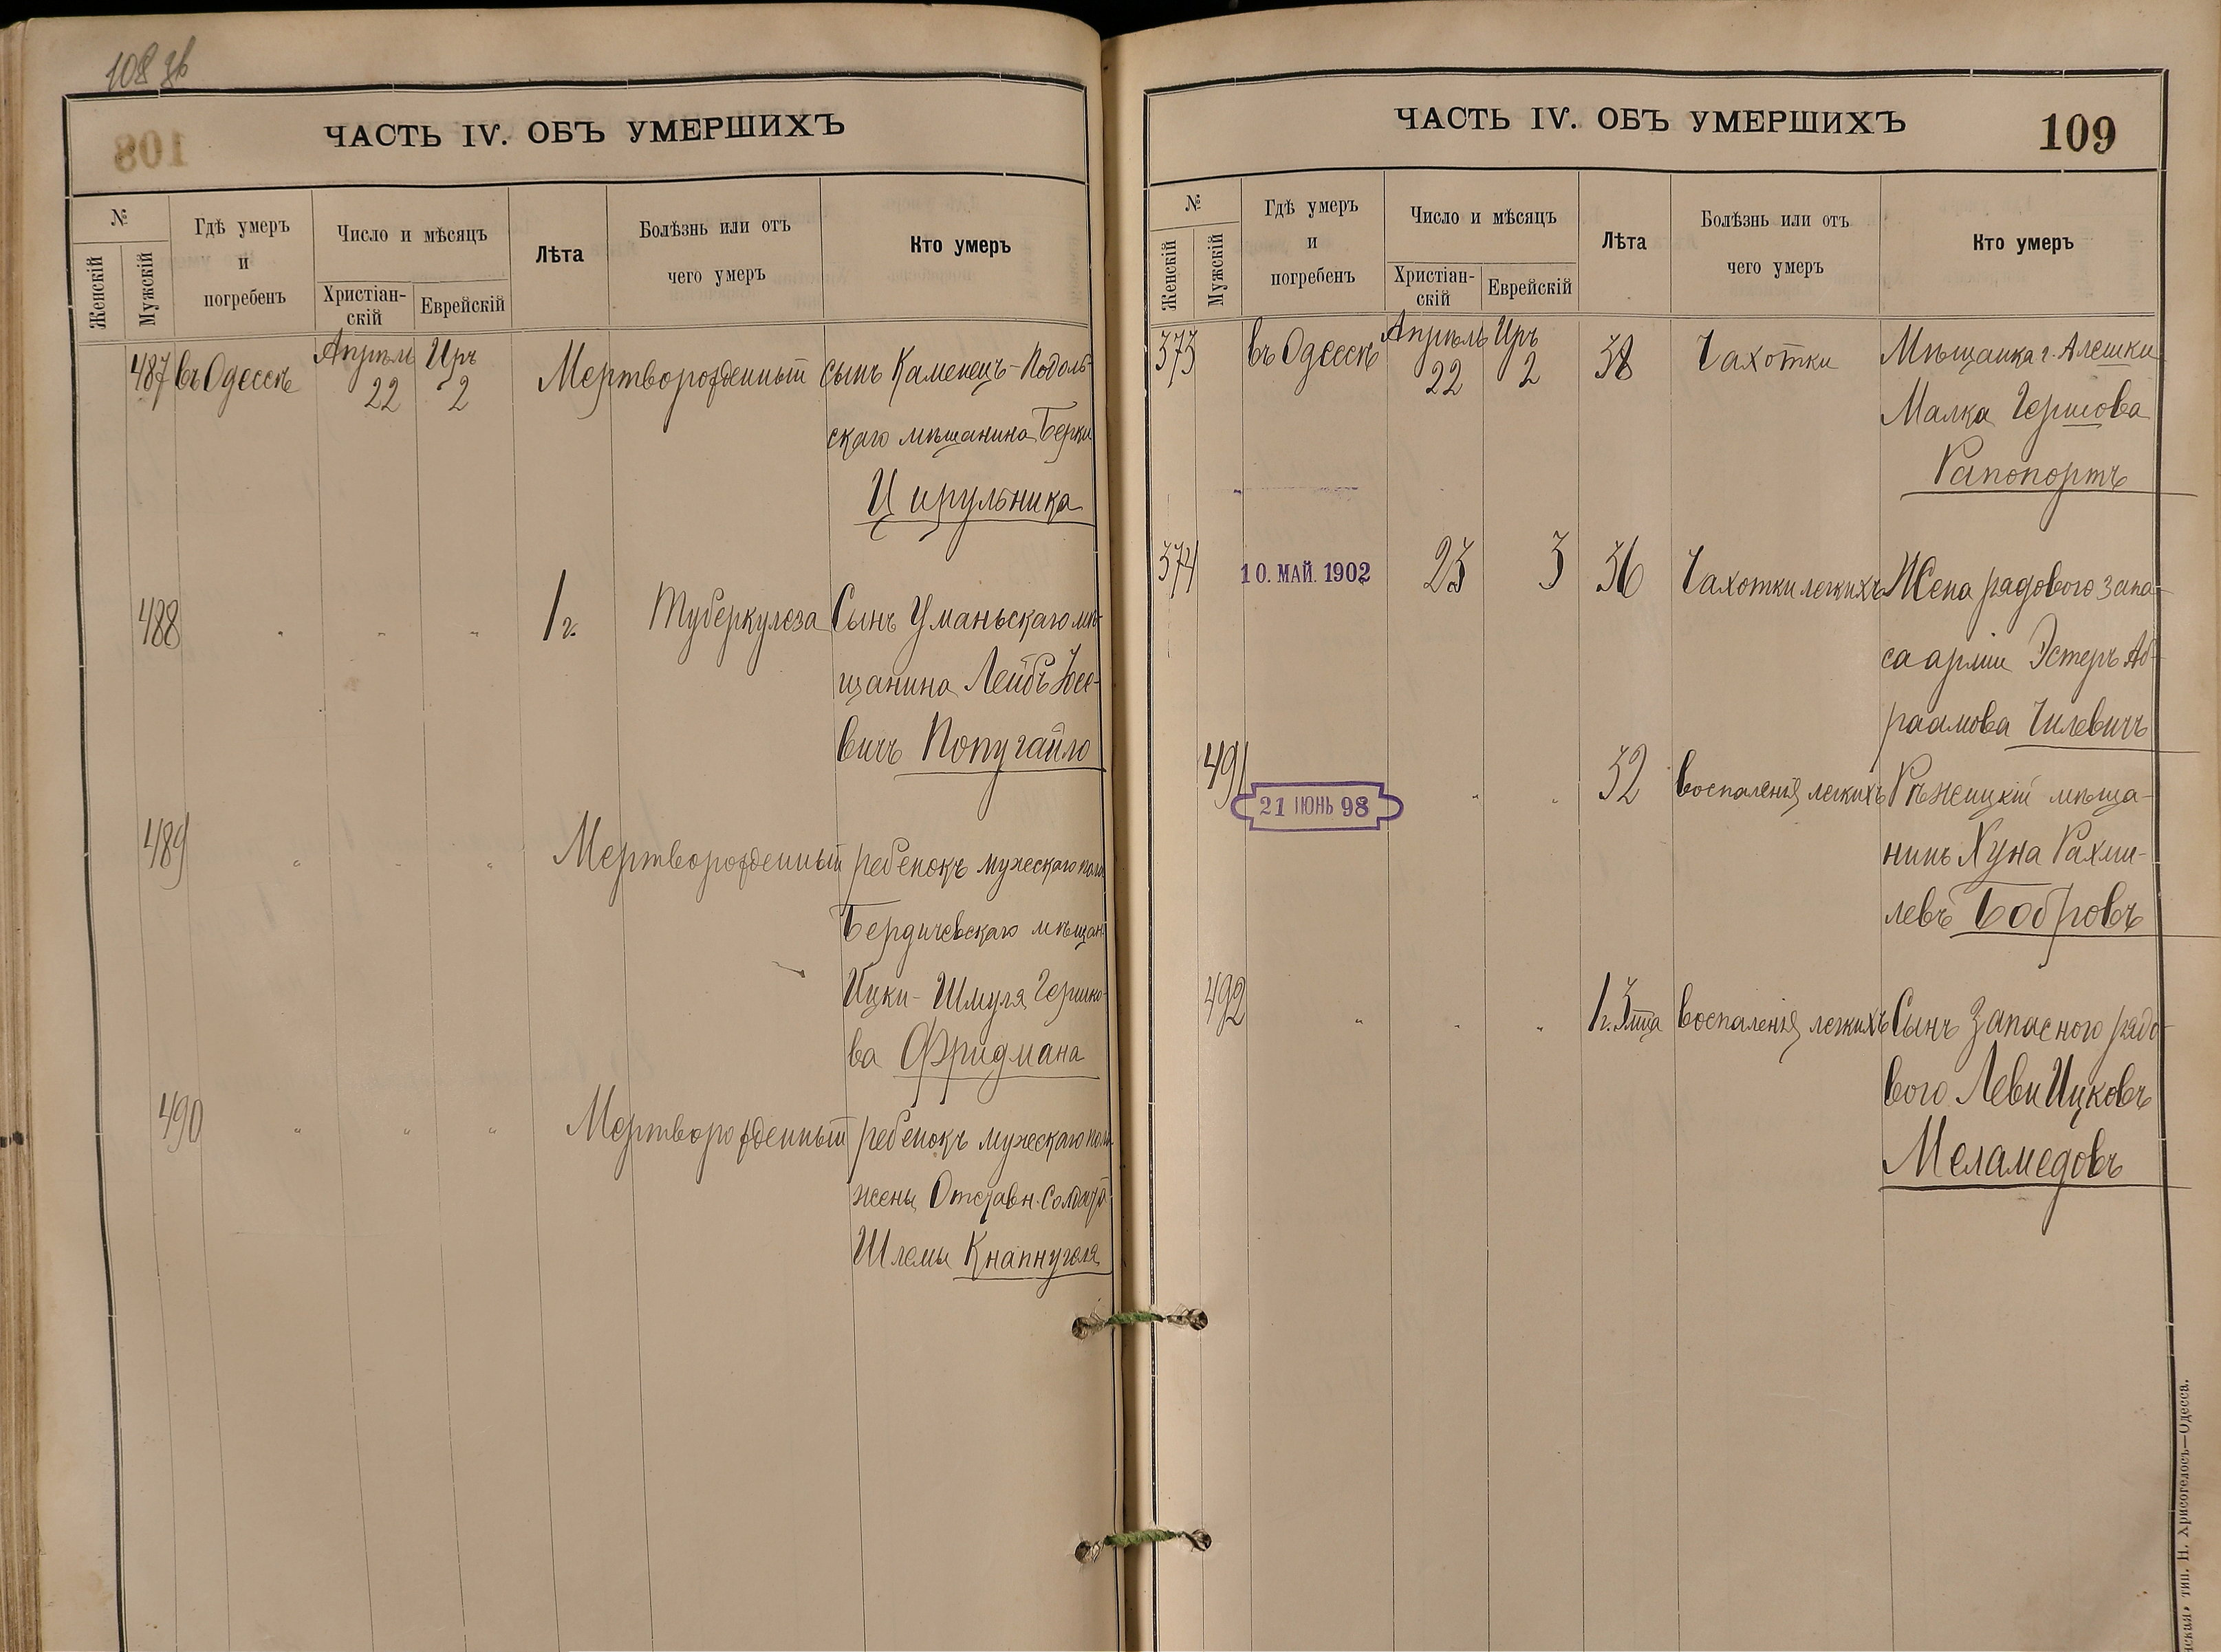 108 об
ЧАСТЬ IV. ОБЪ УМЕРШИХЪ
108
№
Женскій
Мужскій
Гдѣ умеръ
и
погребенъ
Число и мѣсяцъ
Христіан-
скій
Еврейскій
Лѣта
Болѣзнь или отъ
чего умеръ
Кто умеръ
487 въ Одессѣ Апрѣль 22 Иръ 2 Мертворожденный сынъ Каменецъ-Подоль-
скаго мѣщанина Берки
Цирульника
488 " " " 1 г. Туберкулеза Сынъ Уманьскаго мѣ-
щанина Лейбъ Іосе-
вичъ Попугайло
489 " " " Мертворожденный ребенокъ мужескаго пола
Бердичевскаго мѣщан.
Ицки-Шмуля Гершко-
ва Фридмана
490 " " " Мертворожденный ребенокъ мужескаго пола
жены Отставн. Солдата
Шлемы Кнапнугеля
ЧАСТЬ IV. ОБЪ УМЕРШИХЪ
109
№
Женскій
Мужскій
Гдѣ умеръ
и
погребенъ
Число и мѣсяцъ
Христіан-
скій
Еврейскій
Лѣта
Болѣзнь или отъ
чего умеръ
Кто умеръ
373 въ Одессѣ Апрѣль 22 Иръ 2 38 Чахотки Мѣщанка г. Алешки
Малка Гершова
Рапопортъ
374 10. МАЙ. 1902 23 3 36 Чахотки легкихъ Жена рядового запа-
са арміи Эстеръ Аб-
раамова Чилевичъ
491 21 ІЮНЬ 98 " " 52 воспаленія легкихъ Рѣжицкій мѣща-
нинъ Хуна Рахми-
левъ Бобровъ
492 " " " 1 г. 3 мца воспаленія легкихъ Сынъ Запасного рядо-
вого Леви Ицковъ
Меламедовъ
тип. Н. Хрисогелосъ—Одесса.